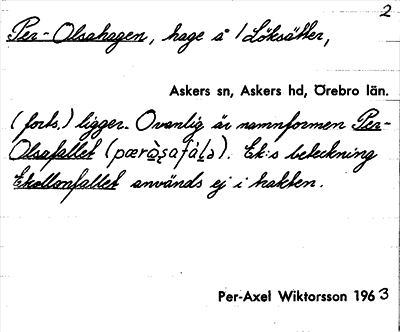 2
Per-Olsahagen, hage å 1 Löksätter,
Askers sn, Askers hd, Örebro län.
(forts.) ligger. Ovanlig är namnformen Per-
Olsafallet (pæròʂafàḷə). Ek:s beteckning
Ekollonfallet används ej i trakten.
Per-Axel Wiktorsson 1963